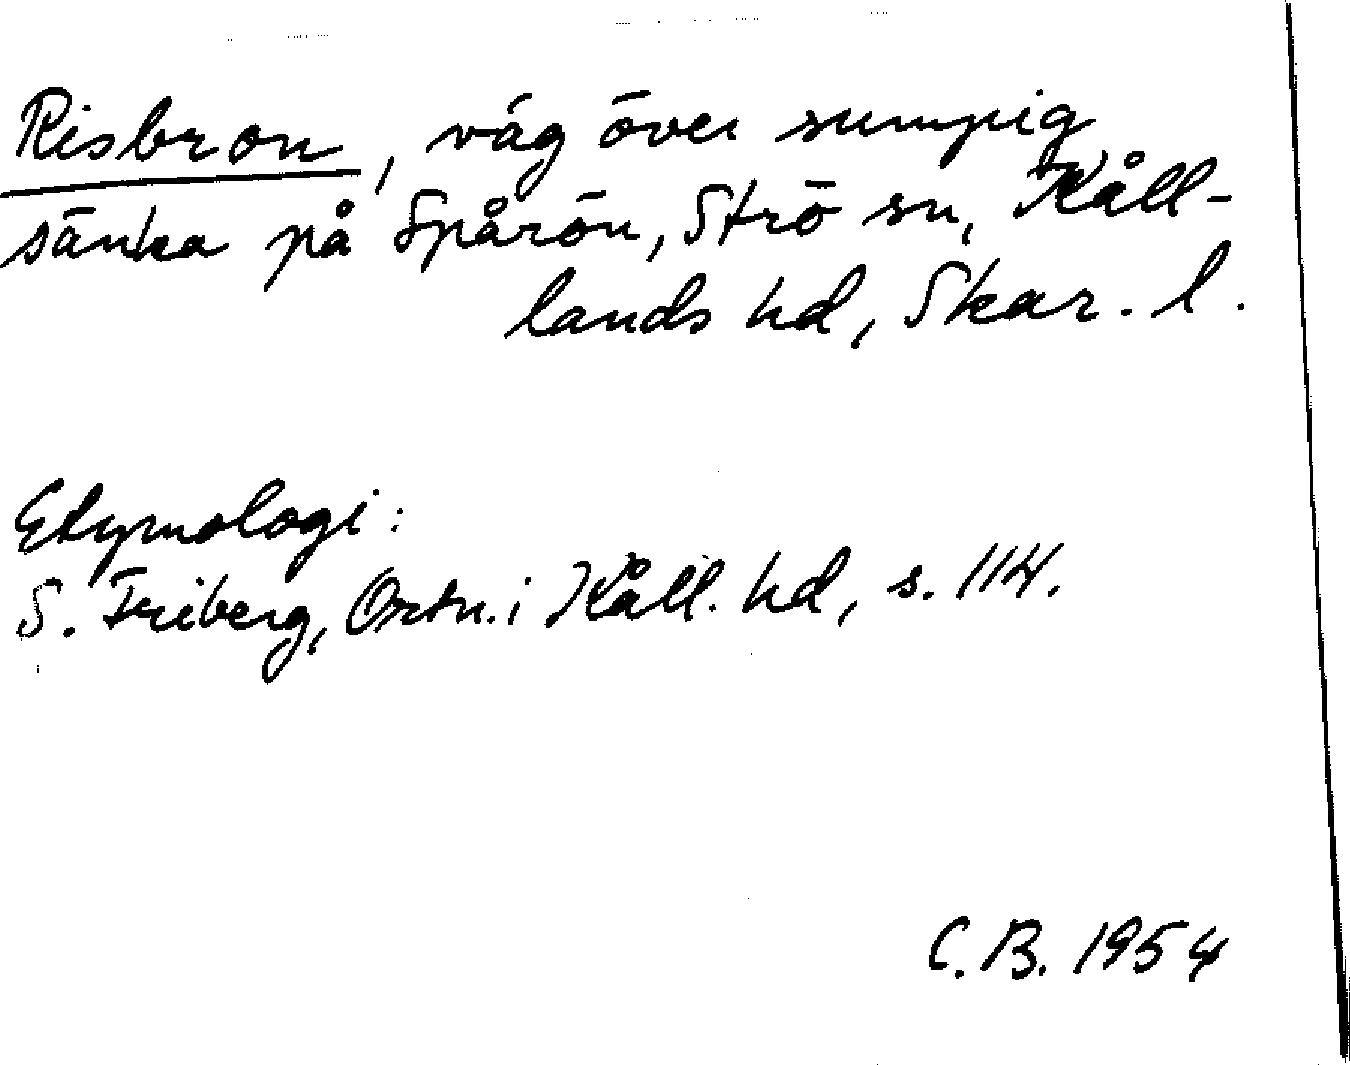 Risbron, väg över sumpig
sänka på Spårön, Strö sn, Kåll-
lands hd, Skar. l.
Etymologi:
S. Friberg, Ortn. i Kåll. hd, s. 114.
C. B. 1954